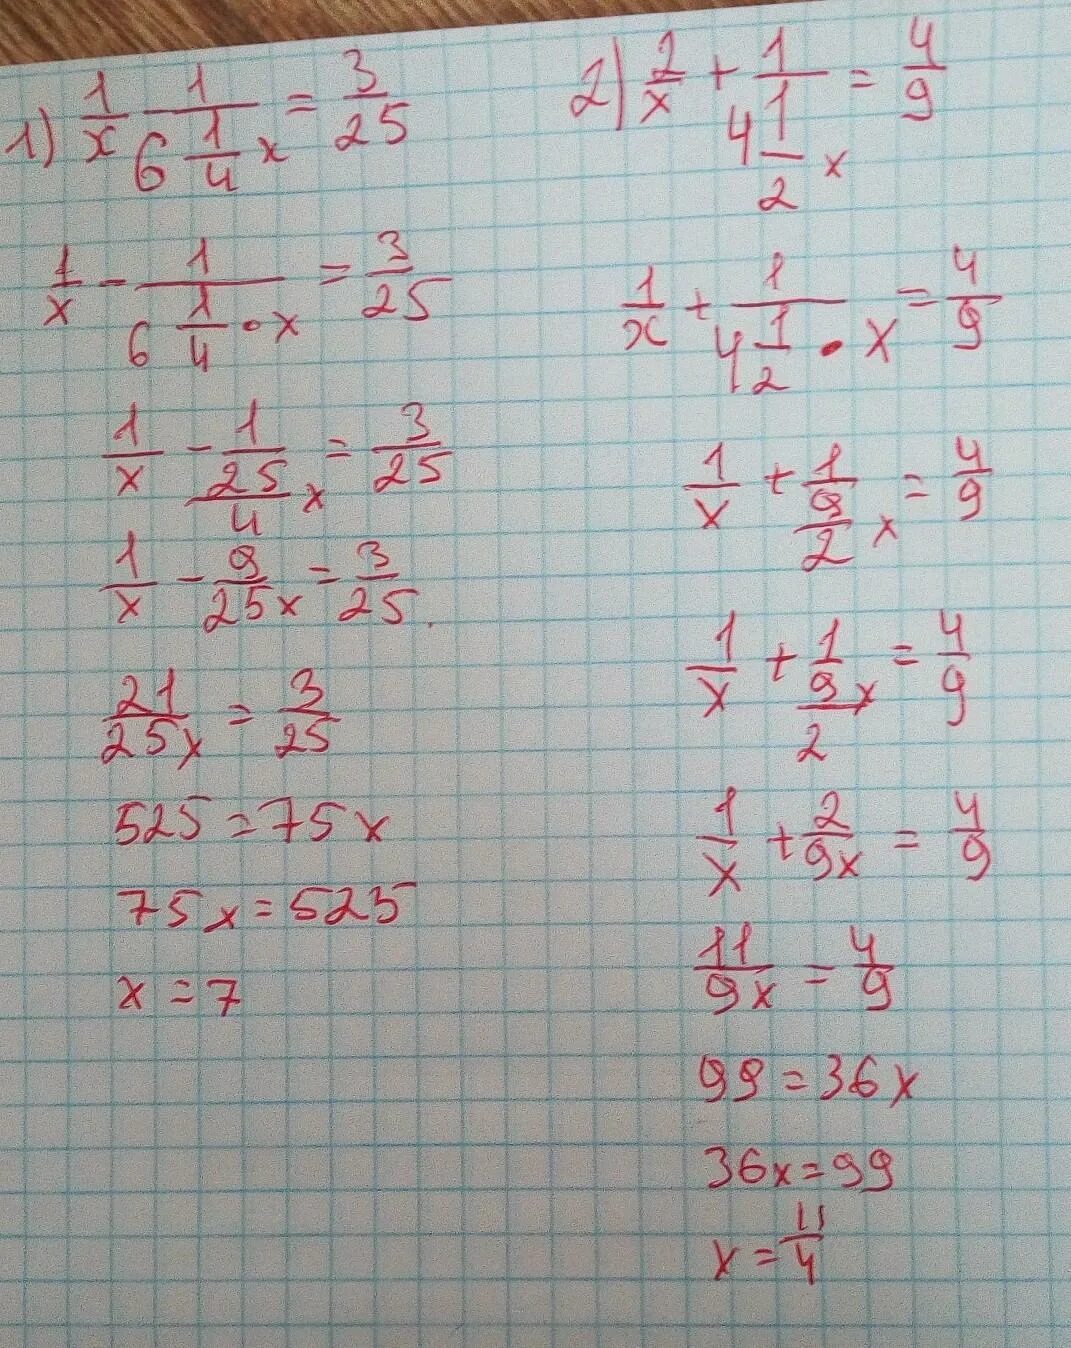 1) 1/x 1/(6 1/4 x) = 3/25
1/x - 1/(6 1/4 · x) = 3/25
1/x - 1/(25/4 x) = 3/25
1/x - 9/(25x) = 3/25.
21/(25x) = 3/25
525 = 75x
75x = 525
x = 7
2) 2/x + 1/(4 1/2 x) = 4/9
1/x + 1/(4 1/2 · x) = 4/9
1/x + 1/(9/2 x) = 4/9
1/x + 1/(9x/2) = 4/9
1/x + 2/(9x) = 4/9
11/(9x) = 4/9
99 = 36x
36x = 99
x = 11/4